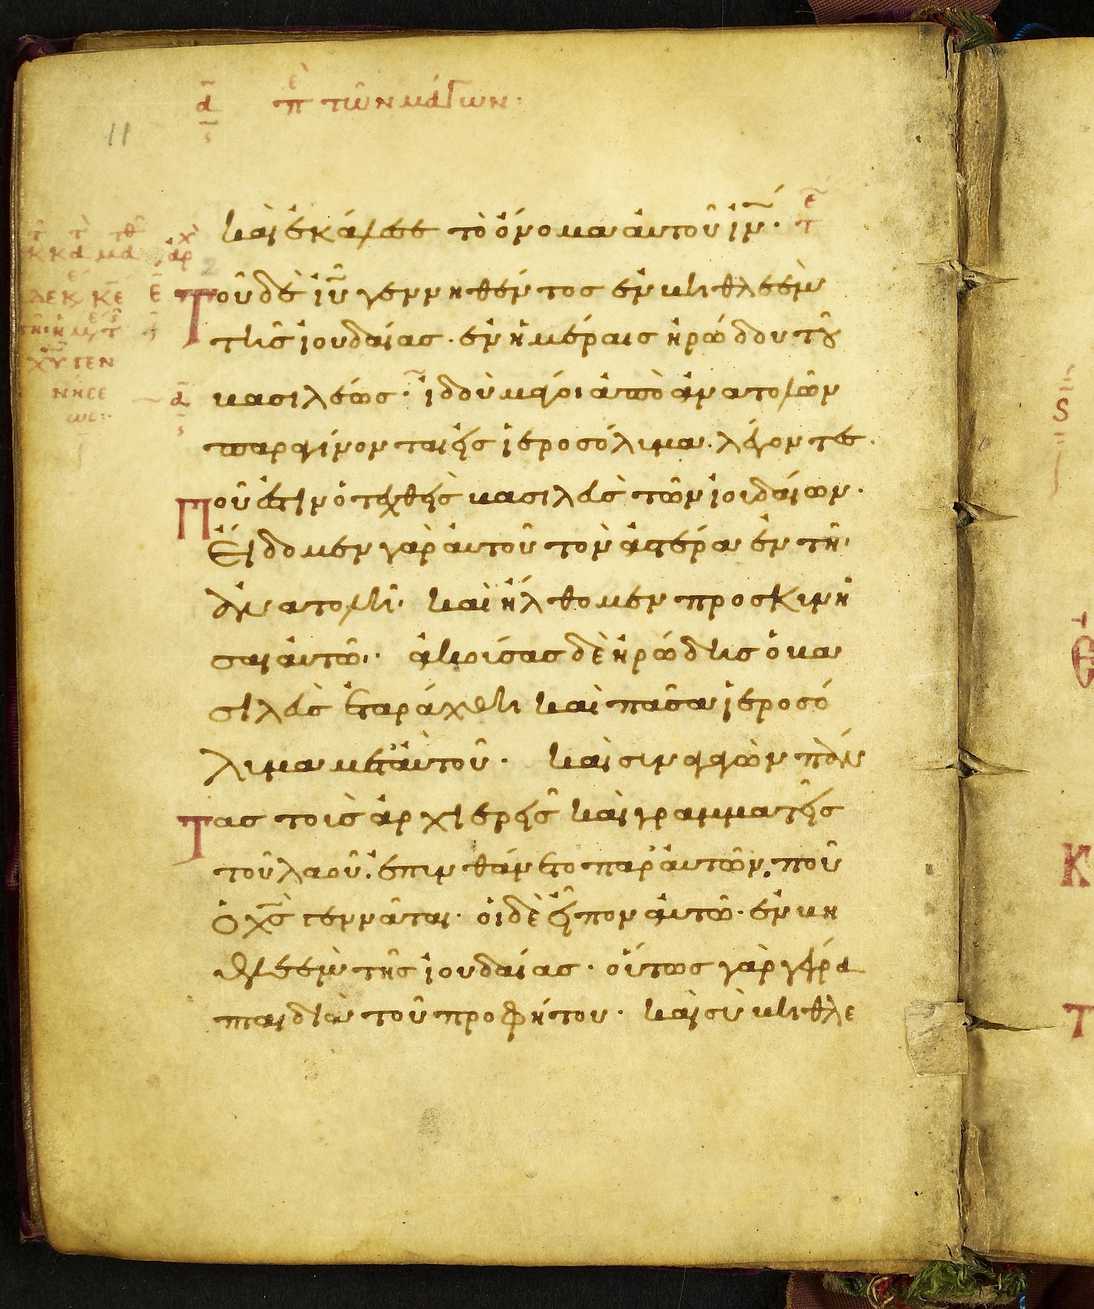 α πε τῶν μάγων·
11
καὶ ἐκάλεσε τὸ ὄνομα αὐτοῦ ἰν·
Τοῦ δὲ ἰυ γεννηθέντος ἐν βηθλεὲμ
τῆς ἰουδαίας· ἐν ἡμέραις ἡρώδου τοῦ
βασιλέως· ἰδοὺ μάγοι ἀπὸ ἀνατολῶν
παρεγίνονται εἰς ἱεροσόλιμα· λέγοντες·
Ποῦ ἐστιν ὁ τεχθεὶς βασιλεὺς τῶν ἰουδαίων·
Εἴδομεν γὰρ αὐτοῦ τὸν ἀστέρα ἐν τῆ
ἀνατολῆ· καὶ ἤλθομεν προσκινῆ
σαι αὐτῶ· ἀκούσας δὲ ἡρώδης ὁ βα
σιλεὺς ἐταράχθη καὶ πᾶσα ἱεροσό
λιμα μετ᾽ αὐτοῦ· καὶ συναγαγὼν πάν
Τας τοὺς ἀρχιερεῖς καὶ γραμματεῖς
τοῦ λαοῦ· ἐπυνθάνετο παρ᾽ αὐτῶν· ποῦ
ὁ χς γεννᾶται· οἱ δὲ εἶπον αὐτῶ· ἐν βη
θλεὲμ τῆς ἰουδαίας· οὕτως γὰρ γέγρα
πται διὰ τοῦ προφήτου· καὶ σὺ βηθλε